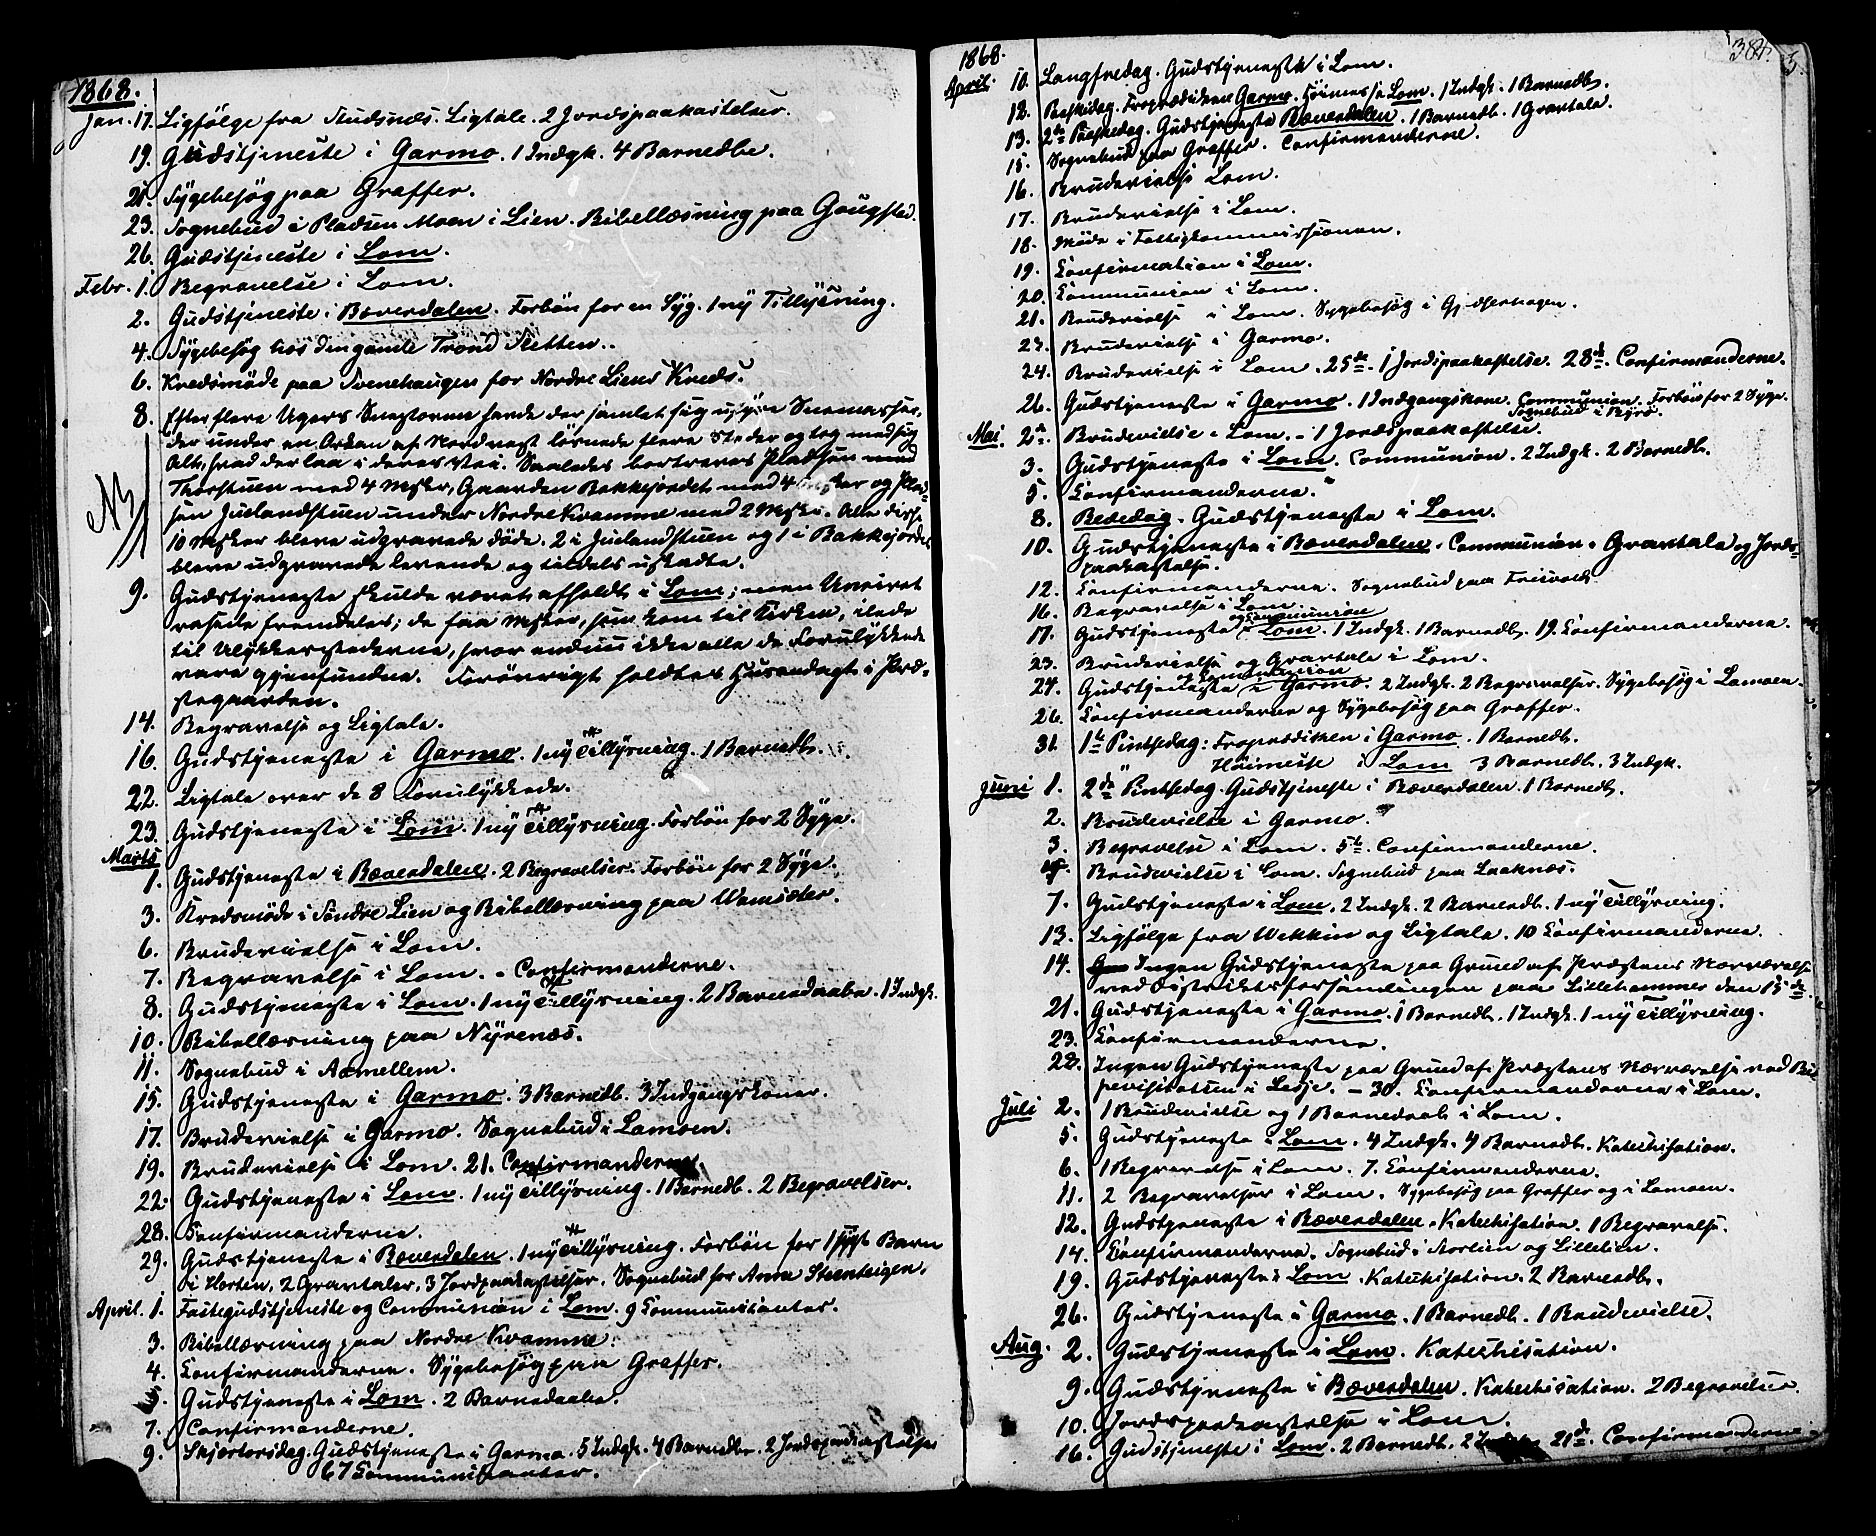 1868.
Jan. 17. Ligfölge fra Sudsnæs. Ligtale. 2 Jordspaakastelser.
19. Gudstjeneste i Garmo. 1 Indgk. 4 Barnedbe.
21. Sygebesög paa Graffer.
23. Sognebud i Pladsen Moen i Lien. Bibellæsning paa Gaugstad.
26. Gudstjeneste i Lom.
Febr. 1. Begravelse i Lom.
2. Gudstjeneste i Bæverdalen. Forbön for en Syg. 1 ny Tillysning.
4. Sygebesög hos den gamle Trond Sletten.
6. Kredsmöde paa Svenehaugen for Nordre Liens Kreds.
8. Efter flere Ugers Snestorme havde der samlet sig uhyre Snemasser,
der under en Orkan af Nordvest lösnede flere Steder og tog med sig
Alt, hvad der laa i deres Vei. Saaledes bortreves Pladsen med
Thorstuen med 4 Msker, Gaarden Bakkejordet med 4 Msker og Plad-
sen Juelandstuen under Nordre Kvamme med 2 Mskr. Alle disse
10 Msker bleve udgravede döde. 2 i Juelandstuen og 1 i Bakkejordet
bleve udgravede levende og tildels uskadte.
NB
9. Gudstjeneste skulde været afholdt i Lom; men Uveiret
rasede fremdeles; de faa Msker, som kom til Kirken, ilede
til Ulykkesstederne, hvor endnu ikke alle de Forulykkede
vare gjenfundne. Forövrigt holdtes Husandagt i Præ-
stegaarden.
14. Begravelse og Ligtale.
16. Gudstjeneste i Garmo. 1 ny Tillysning. 1 Barnedb.
22. Ligtale over de 8 Forulykkede.
23. Gudstjeneste i Lom. 1 ny Tillysning. Forbön for 2 Syge.
Marts
1. Gudstjeneste i Bæverdalen. 2 Begravelser. Forbön for 2 Syge.
3. Kredsmöde i Söndre Lien og Bibellæsning paa Vamsæter.
6. Brudevielse i Lom.
7. Begravelse i Lom. - Confirmanderne.
8. Gudstjeneste i Lom. 1 ny Tillysning. 2 Barnedaabe. 1 Indgk.
10. Bibellæsning paa Nyrenæs.
11. Sognebud i Aamellem.
15. Gudstjeneste i Garmo. 3 Barnedb. 3 Indgangskoner.
17. Brudevielse i Garmo. Sognebud i Lamoen.
19. Brudevielse i Lom. 21. Confirmanderne.
22. Gudstjeneste i Lom. 1 ny Tillysning. 1 Barnedb. 2 Begravelser.
28. Confirmanderne.
29. Gudstjeneste i Bæverdalen. 1 ny Tillysning. Forbön for 1 sygt Barn
i Horten, 2 Gravtaler, 3 Jordpaakastelser. Sognebud for Anna Steenteigen.
April. 1. Fastegudstjeneste og Communion i Lom. 9 Communikanter.
3. Bibellæsning paa Nordre Kvamme.
4. Confirmanderne. Sygebesög paa Graffer.
5. Gudstjeneste i Lom. 2 Barnedaabe.
7. Confirmanderne.
9. Skjertorsdag. Gudstjeneste i Garmo. 5 Indgk. 4 Barnedbe. 2 Jordspaakastelser
67 Communikanter.
384. 3.
1868.
April. 10. Langfredag. Gudstjeneste i Lom.
12. Paaskedag. Froprædiken Garmo. Höimesse Lom. 1 Indgk. 1 Barnedb.
13. 2den Paaskedag. Gudstjeneste Bæverdalen. 1 Barnedb. 1 Gravtale.
15. Sognebud paa Graffer. Confirmanderne.
16. Brudevielse Lom.
17. Brudevielse i Lom.
18. Möde i Fattigkommissionen.
19. Confirmation i Lom.
20. Communion i Lom.
21. Brudevielse i Lom. Sygebesög i Gjeitserhagen.
23. Brudevielse i Garmo.
24. Brudevielse i Lom. 25de. 1 Jordspaakastelse. 28de. Confirmanderne.
26. Gudstjeneste i Garmo. 1 Indgangskone. Communion. Forbön for 2 Syge.
Sognebud i
Mai. 2den. Brudevielse i Lom. - 1 Jordspaakastelse.
3. Gudstjeneste i Lom. Communion. 2 Indgk. 2 Barnedb.
5. Confirmanderne.
8. Bededag. Gudstjeneste i Lom.
10. Gudstjeneste i Bæverdalen. Communion. Gravtale og Jords-
paakastelse.
12. Confirmanderne. Sognebud paa
16. Begravelse i Lom.
og Communion
17. Gudstjeneste i Lom. 1 Indgk. 1 Barnedb. 19. Confirmanderne.
23. Brudevielse og Gravtale i Lom.
og Communion
24. Gudstjeneste i Garmo. 2 Indgk. 2 Begravelser. Sygebesög i Lamoen.
26. Confirmanderne og Sygebesög paa Graffer.
31. 1ste Pintsedag: Froprædiken i Garmo. 1 Barnedb.
Höimesse i Lom 3 Barnedb. 3 Indgk.
Juni 1. 2den Pintsedag. Gudstjeneste i Bæverdalen. 1 Barnedb.
2. Brudevielse i Garmo.
3. Begravelse i Lom. 5te. Confirmanderne.
5. Brudevielse i Lom. Sognebud paa Laaknæs.
7. Gudstjeneste i Lom. 2 Indgk. 2 Barnedb. 1 ny Tillysning.
13. Ligfölge fra Wekkin og Ligtale. 10 Confirmanderne.
14. Ingen Gudstjeneste paa Grund af Præstens Nærværelse
ved Distriktsforsamlingen paa Lillehammer den 15de.
21. Gudstjeneste i Garmo. 1 Barnedb. 1 Indgk. 1 ny Tillysning.
23. Confirmanderne.
28. Ingen Gudstjeneste paa Grund af Præstens Nærværelse ved Bi-
spevisitatsen i Lesje. - 30. Confirmanderne i Lom.
Juli 2. 1 Brudevielse og 1 Barnedaab i Lom.
5. Gudstjeneste i Lom. 4 Indgk. 4 Barnedb. Katechisation.
6. 1 Begravelse i Lom. 7. Confirmanderne.
11. 2 Begravelser i Lom. Sygebesög paa Graffer og i Lamoen.
12. Gudstjeneste i Bæverdalen. Katechisation. 1 Begravelse.
14. Confirmanderne. Sognebud i Storlien og Lillelien.
19. Gudstjeneste i Lom. Katechisation. 2 Barnedb.
26. Gudstjeneste i Garmo. 1 Barnedb. 1 Brudevielse.
Aug. 2. Gudstjeneste i Lom. Katechisation.
9. Gudstjeneste i Bæverdalen. Katechisation. 2 Begravelser.
10. Jordspaakastelse i Lom.
16. Gudstjeneste i Lom. 2 Barnedb. 2 21de. Confirmanderne.